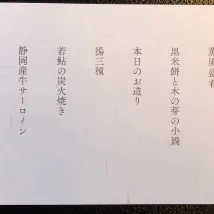 黒米餅と木の芽の小鍋
本日のお造り
揚三種
若鮎の炭火焼き
静岡産牛サーロイン